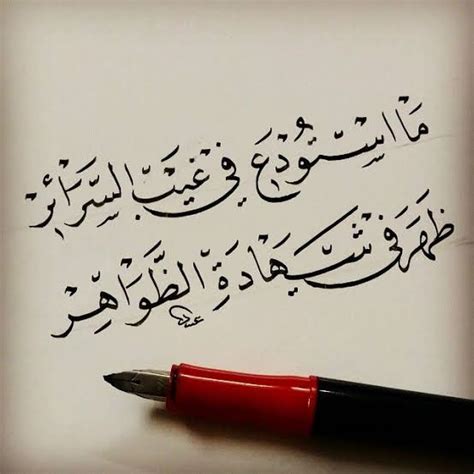 مَا اسْتُوْدِعَ فِيْ غَيْبِ السَّرَائِرْ
ظَهَرَ فِيْ شَهَادَةِ الظَّوَاهِرْ